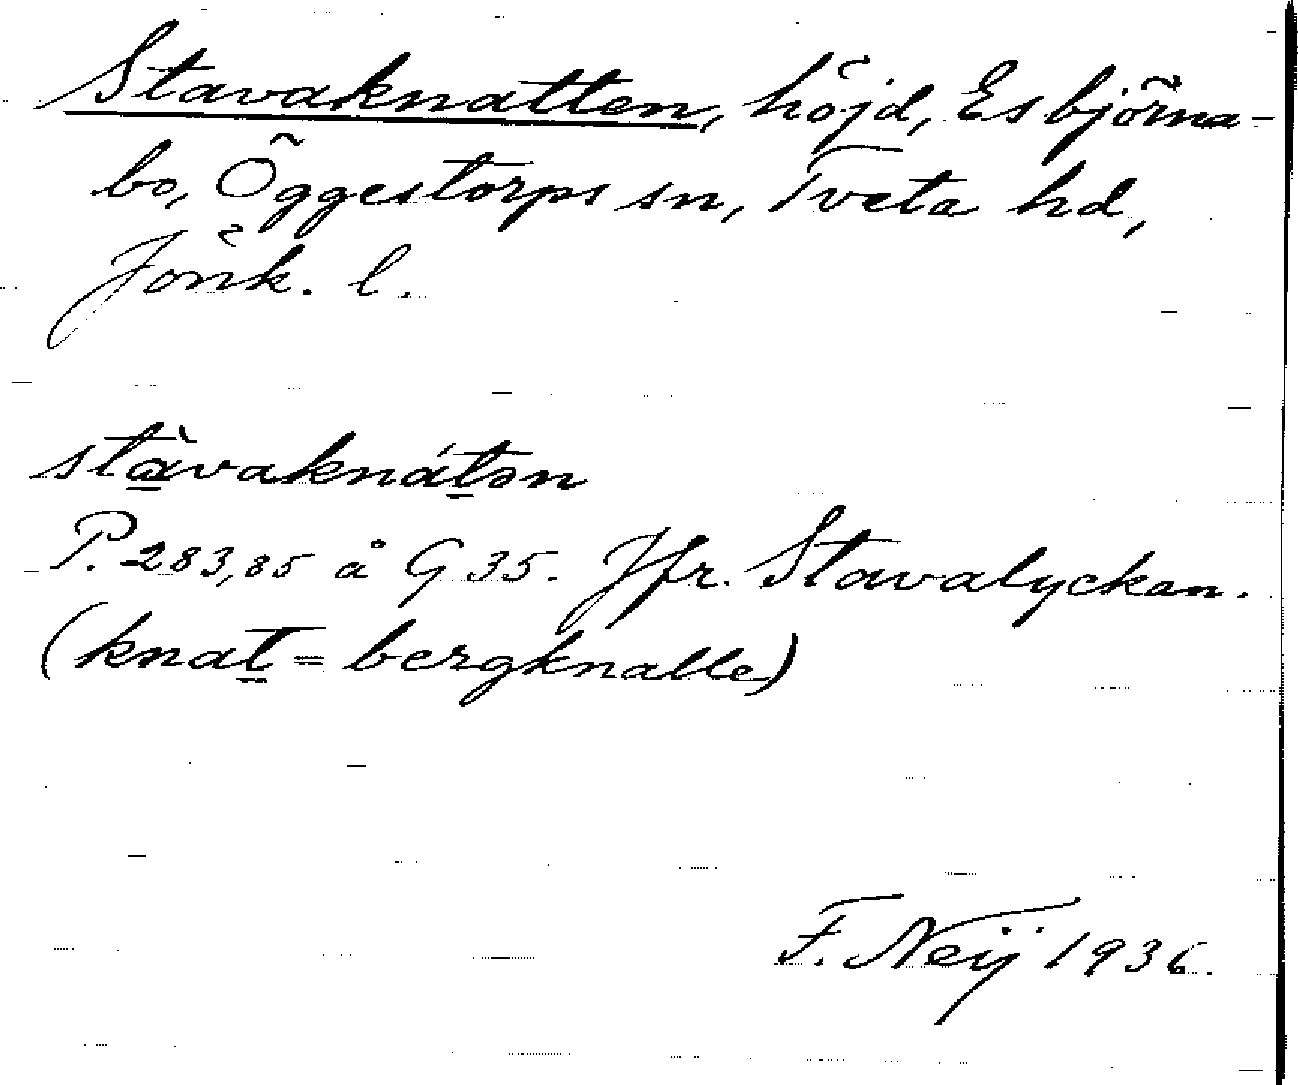 Stavaknatten, höjd, Esbjörna-
bo, Öggestorps sn, Tveta hd,
Jönk. l.
stàvaknátən
P. 283,85 å G 35. Jfr. Stavalyckan.
(knat = bergknalle)
F. Neij 1936.